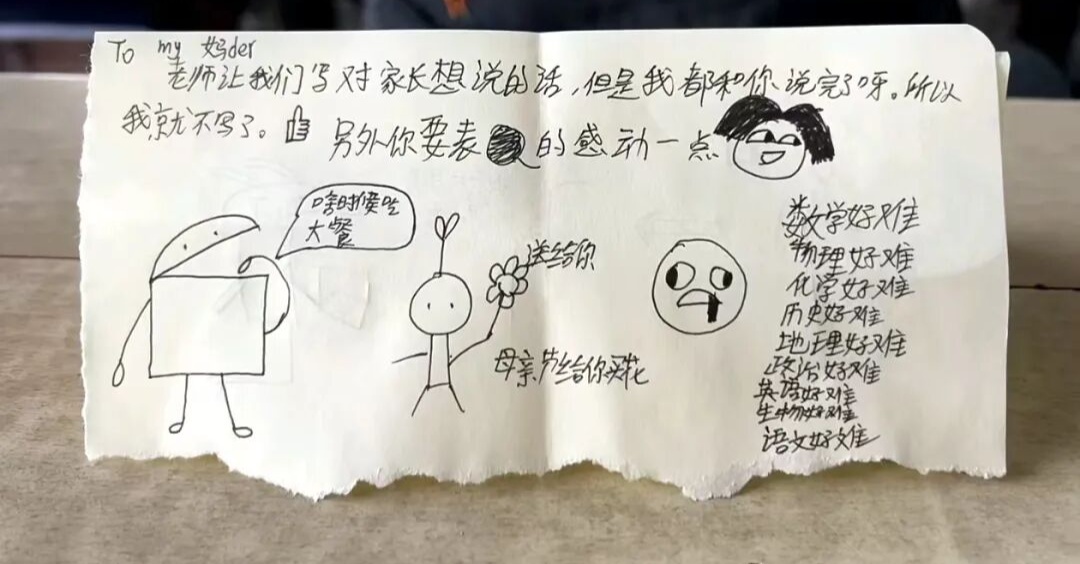 To my 妈der
老师让我们写对家长想说的话，但是我都和你说完了呀。所以
我就不写了。 另外你要表 的感动一点
啥时候吃
大餐
送给你
母亲节给你买花
数学好难
物理好难
化学好难
历史好难
地理好难
政治好难
英语好难
生物好难
语文好难